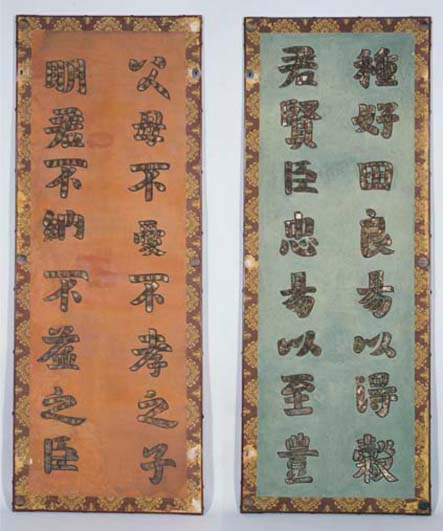 種好田良易以得穀
君賢臣忠易以至豊
父母不愛不孝之子
明君不納不益之臣